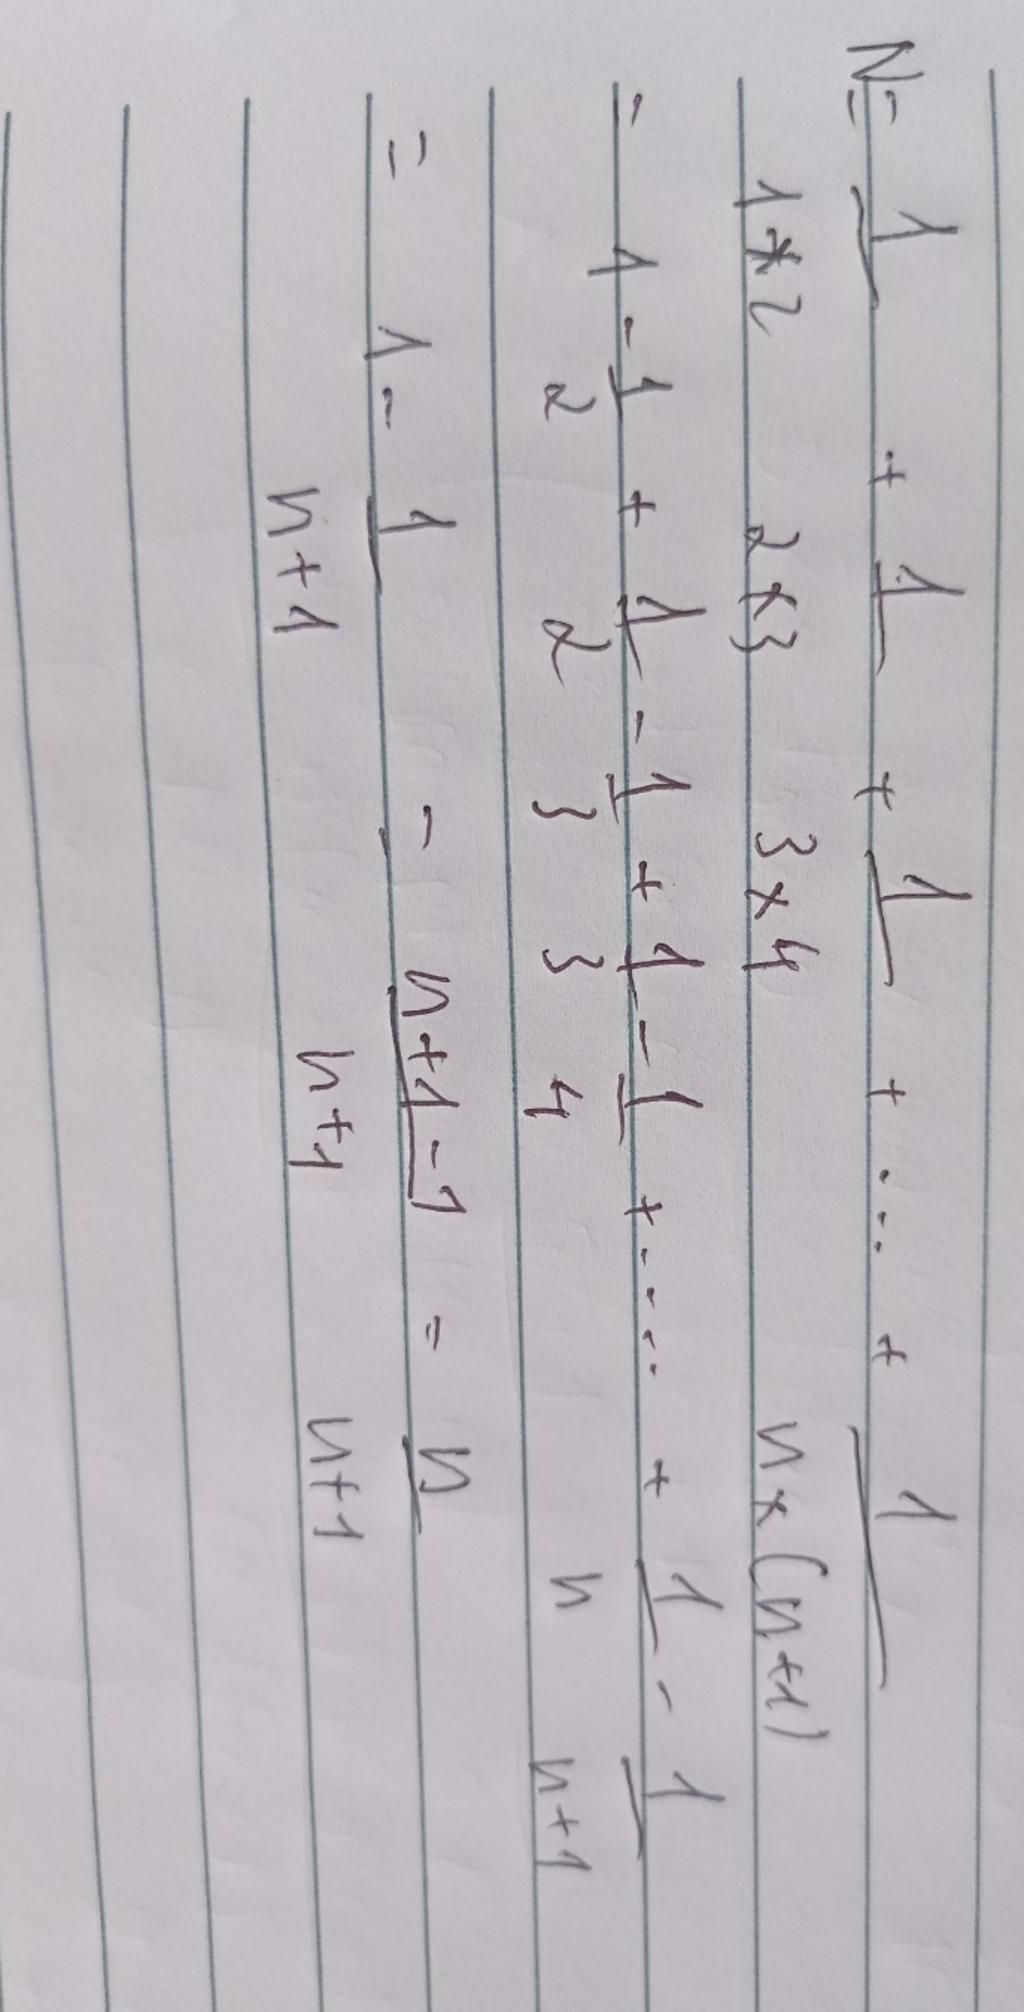 N = 1/(1*2) + 1/(2×3) + 1/(3×4) + ... + 1/(n×(n+1))
= 1 - 1/2 + 1/2 - 1/3 + 1/3 - 1/4 + .... + 1/n - 1/(n+1)
= 1 - 1/(n+1) = (n+1-1)/(n+1) = n/(n+1)